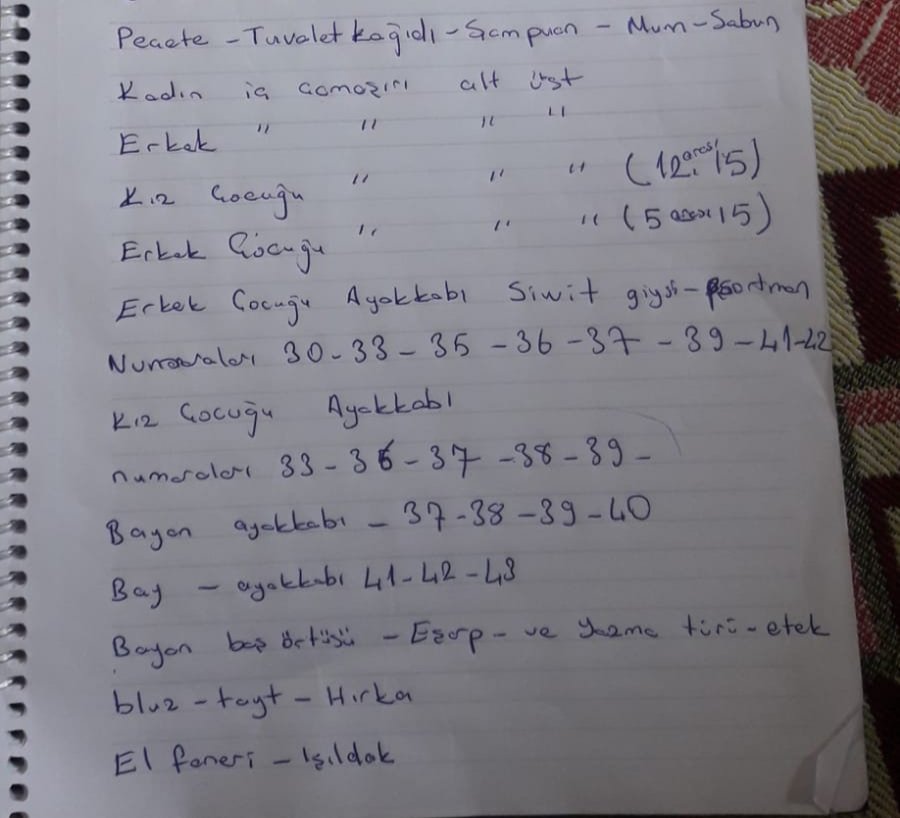 Peçete - Tuvalet kağıdı - Şampuan - Mum - Sabun
Kadın iç çamaşırı alt üst
Erkek " " " "
Kız Çocuğu " " " (12 arası 15)
Erkek Çocuğu " " " (5 arası 15)
Erkek Çocuğu Ayakkabı Siwit giysi - Eşortman
Numaraları 30 - 33 - 35 - 36 - 37 - 39 - 41 - 42
Kız Çocuğu Ayakkabı
numaraları 33 - 36 - 37 - 38 - 39 -
Bayan ayakkabı - 37 - 38 - 39 - 40
Bay - ayakkabı 41 - 42 - 43
Bayan baş örtüsü - Eşarp - ve Yazma türü - etek
bluz - tayt - Hırka
El feneri - Işıldak